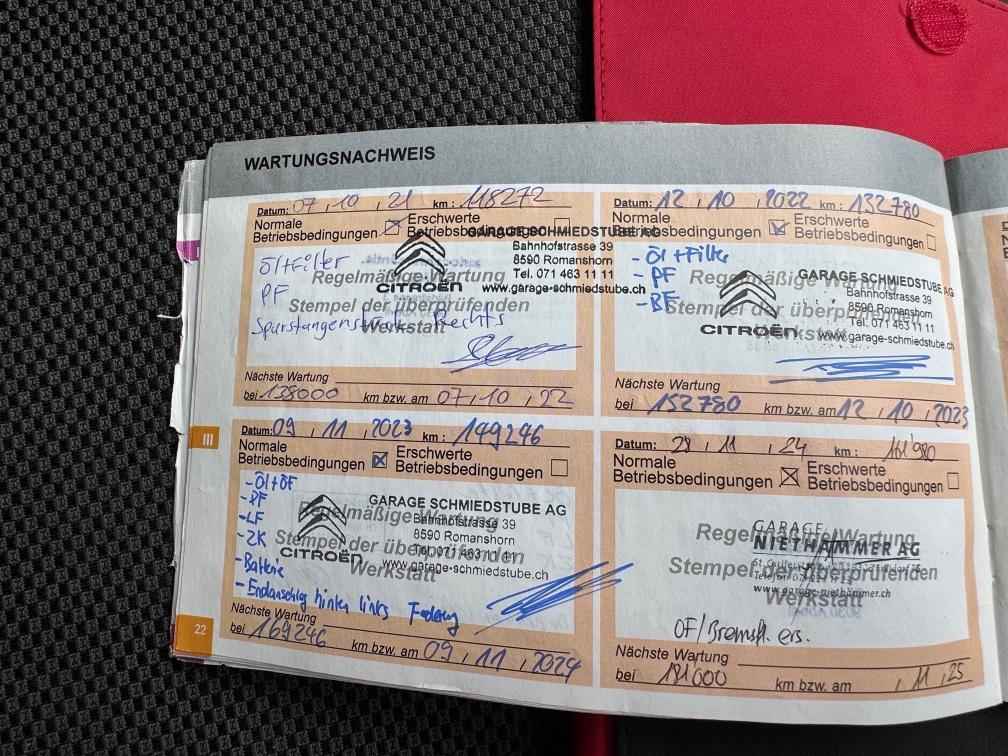 WARTUNGSNACHWEIS
Datum: 07, 10, 21 km: 118272
Normale Betriebsbedingungen Erschwerte Betriebsbedingungen
Öl+Filter
PF
Spurstangen Rechts
Regelmäßige Wartung
Stempel der überprüfenden
Werkstatt
GARAGE SCHMIEDSTUBE AG
Bahnhofstrasse 39
8590 Romanshorn
Tel. 071 463 11 11
www.garage-schmiedstube.ch
CITROËN
Nächste Wartung
bei 138000 km bzw. am 07, 10, 22
Datum: 12, 10, 2022 km: 132780
Normale Betriebsbedingungen Erschwerte Betriebsbedingungen
- Öl+Filter
- PF
- BF
Regelmäßige Wartung
Stempel der überprüfenden
Werkstatt
GARAGE SCHMIEDSTUBE AG
Bahnhofstrasse 39
8590 Romanshorn
Tel. 071 463 11 11
www.garage-schmiedstube.ch
CITROËN
Nächste Wartung
bei 152780 km bzw. am 12, 10, 2023
III
Datum: 09, 11, 2023 km: 149246
Normale Betriebsbedingungen Erschwerte Betriebsbedingungen
- Öl+ÖF
- PF
- LF
- ZK
- Batterie
- Endanschlag hinten links Federung
Regelmäßige Wartung
Stempel der überprüfenden
Werkstatt
GARAGE SCHMIEDSTUBE AG
Bahnhofstrasse 39
8590 Romanshorn
Tel. 071 463 11 11
www.garage-schmiedstube.ch
CITROËN
Nächste Wartung
bei 169246 km bzw. am 09, 11, 2024
22
Datum: 28, 11, 24 km: 161'980
Normale Betriebsbedingungen Erschwerte Betriebsbedingungen
Regelmäßige Wartung
Stempel der überprüfenden
Werkstatt
GARAGE
NIETHAMMER AG
www.garage-niethammer.ch
OF/Bremsfl. ers.
Nächste Wartung
bei 181000 km bzw. am , 11, 25